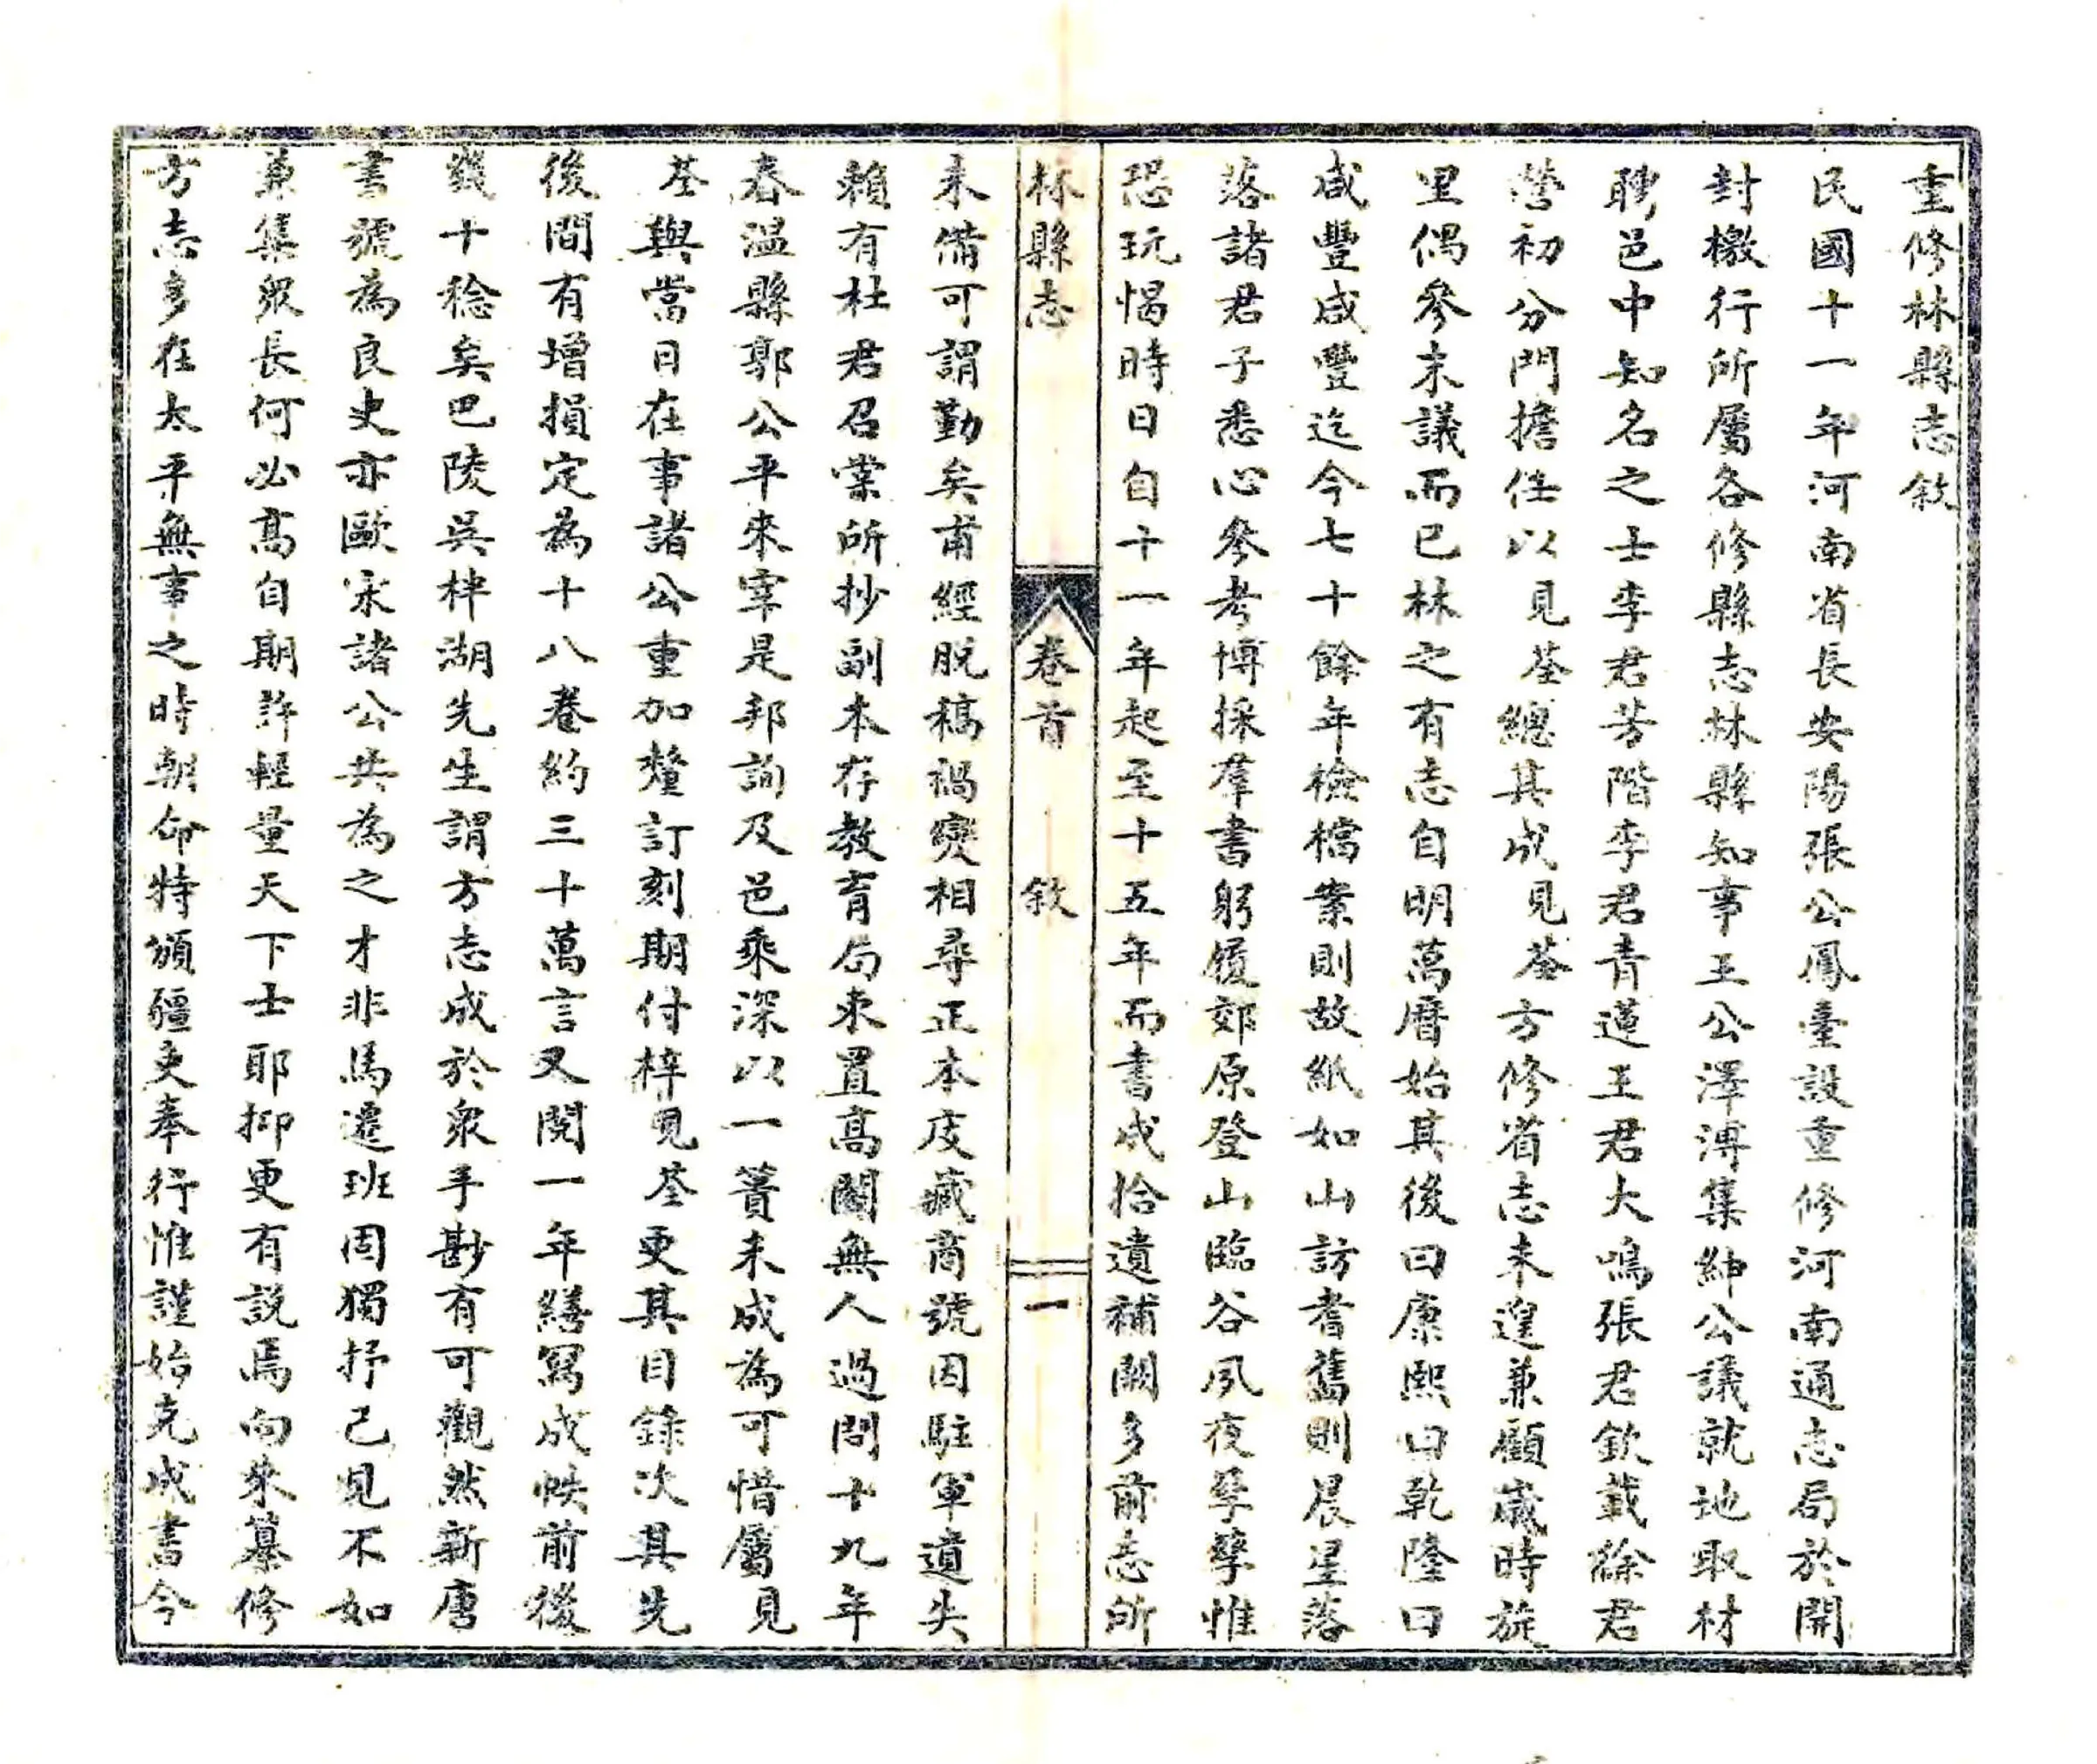 重修林縣志敘
民國十一年河南省長安陽張公鳳臺設重修河南通志局於開
封檄行所屬各修縣志林縣知事王公澤溥集紳公議就地取材
聘邑中知名之士李君芳階李君青蓮王君大鳴張君欽載徐君
營初分門擔任以見荃總其成見荃方修省志未遑兼顧歲時旋
里偶參末議而已林之有志自明萬曆始其後曰康熙曰乾隆曰
咸豐咸豐迄今七十餘年檢檔案則故紙如山訪耆舊則晨星落
落諸君子悉心參考博採羣書躬履郊原登山臨谷夙夜孳孳惟
恐玩愒時日自十一年起至十五年而書成拾遺補闕多前志所
林縣志 卷首 敘 一
未備可謂勤矣甫經脫稿禍變相尋正本庋藏商號因駐軍遺失
賴有杜君召棠所抄副本存教育局束置高閣無人過問十九年
春溫縣郭公平來宰是邦詢及邑乘深以一簣未成為可惜屬見
荃與當日在事諸公重加釐訂刻期付梓見荃更其目錄次其先
後間有增損定為十八卷約三十萬言又閱一年繕寫成帙前後
幾十稔矣巴陵吳柈湖先生謂方志成於眾手尠有可觀然新唐
書號為良史亦歐宋諸公共為之才非馬遷班固獨抒己見不如
兼集眾長何必高自期許輕量天下士耶抑更有說焉向來纂修
方志多在太平無事之時朝命特頒疆吏奉行惟謹始克成書今